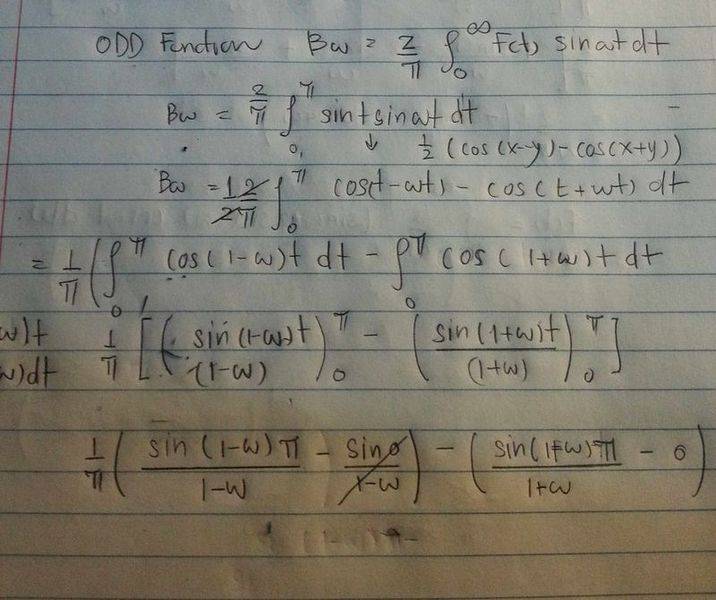 ODD Function Bω = 2/π ∫₀^∞ F(t) sin ωt dt
Bω = 2/π ∫₀^π sin t sin ωt dt
↓ 1/2 (cos(x-y) - cos(x+y))
Bω = 1 2/2π ∫₀^π cos(t-ωt) - cos(t+ωt) dt
= 1/π (∫₀^π cos(1-ω)t dt - ∫₀^π cos(1+ω)t dt
ω)t 1/π [(sin(1-ω)t/(1-ω))₀^π - (sin(1+ω)t/(1+ω))₀^π]
ω)dt
1/π (sin(1-ω)π/1-ω - sin0/1-ω) - (sin(1+ω)π/1+ω - 0)